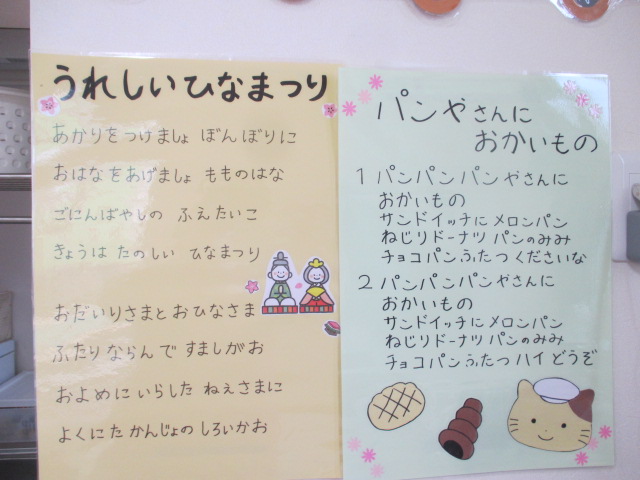 うれしいひなまつり
あかりをつけましょ ぼんぼりに
おはなをあげましょ もものはな
ごにんばやしの ふえたいこ
きょうは たのしい ひなまつり
おだいりさまと おひなさま
ふたり ならんで すましがお
およめに いらした ねぇさまに
よくにた かんじょの しろいかお
パンやさんに
おかいもの
1 パンパンパンやさんに
おかいもの
サンドイッチに メロンパン
ねじりドーナツ パンのみみ
チョコパンふたつ くださいな
2 パンパンパンやさんに
おかいもの
サンドイッチに メロンパン
ねじりドーナツ パンのみみ
チョコパンふたつ ハイ どうぞ